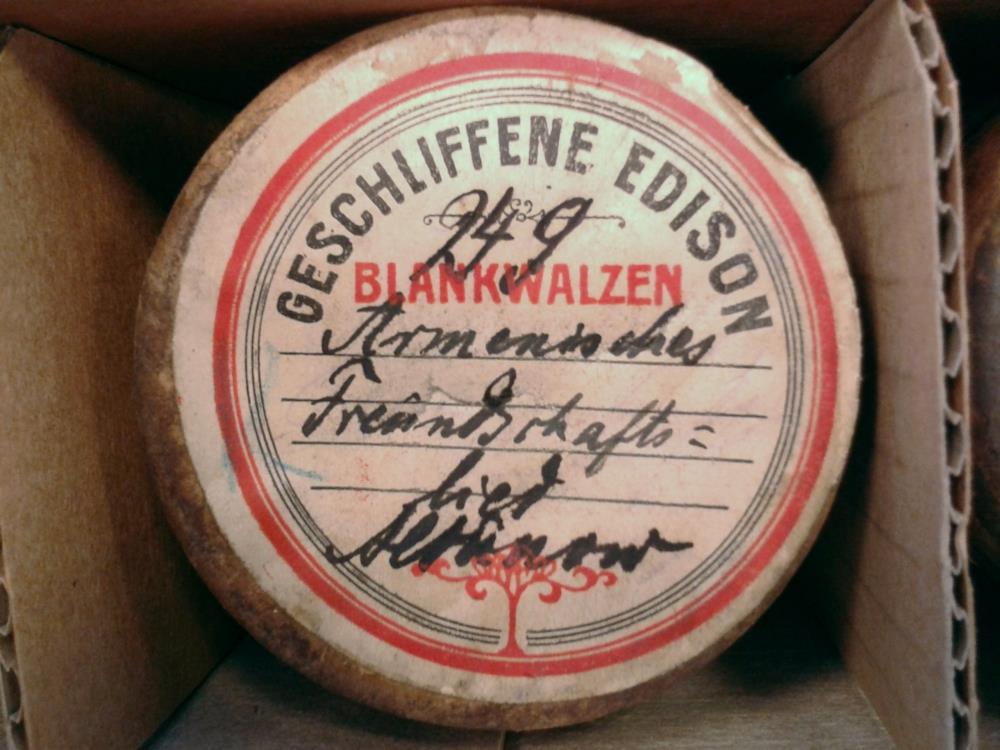 GESCHLIFFENE EDISON
249
BLANKWALZEN
Armenisches
Freundschafts=
lied